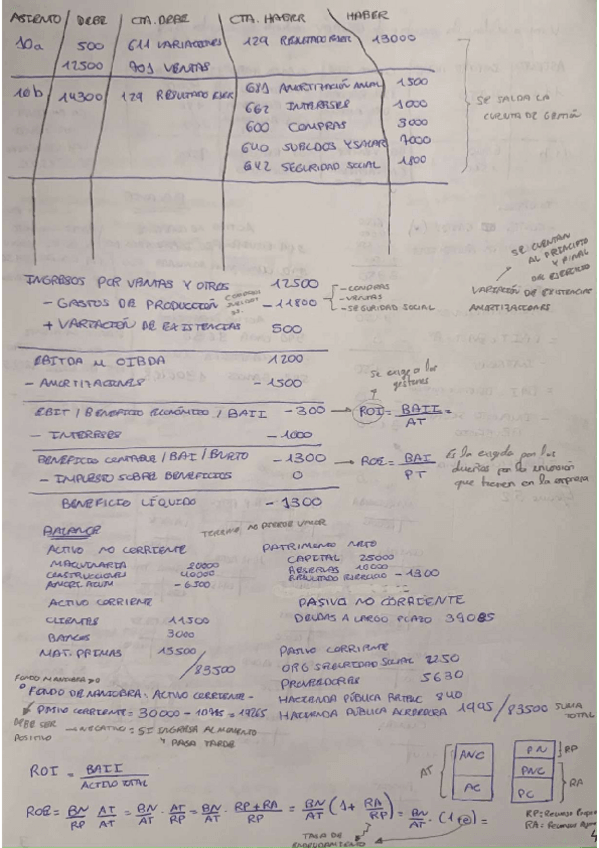 ASIENTO DEBE CTA. DEBE CTA. HABER HABER
10a 500 611 VARIACIONES 129 RESULTADO EJER 13000
12500 701 VENTAS
10b 14300 129 RESULTADO EJER 681 AMORTIZACIÓN ANUAL 1500
662 INTERESES 1000
600 COMPRAS 3000
640 SUELDOS Y SALAR 7000
642 SEGURIDAD SOCIAL 1800
SE SALDA LA
CUENTA DE GESTIÓN
SE CUENTAN
AL PRINCIPIO
Y FINAL
DEL EJERCICIO
VARIACIÓN DE EXISTENCIAS
AMORTIZACIONES
INGRESOS POR VENTAS Y OTROS 12500
- GASTOS DE PRODUCCIÓN -11800
- COMPRAS
- VENTAS
- SEGURIDAD SOCIAL
+ VARIACIÓN DE EXISTENCIAS 500
EBITDA U OIBDA 1200
- AMORTIZACIONES - 1500
EBIT / BENEFICIO ECONÓMICO / BAII - 300 → ROI = BAII / AT =
Se exige a los
gestores
- INTERESES - 1000
BENEFICIO CONTABLE / BAI / BRUTO - 1300 → ROE = BAI / PT
Es la exigida por los
dueños por la inversión
que tienen en la empresa
- IMPUESTO SOBRE BENEFICIOS 0
BENEFICIO LÍQUIDO - 1300
BALANCE
TERRENO NO PIERDE VALOR
ACTIVO NO CORRIENTE PATRIMONIO NETO
MAQUINARIA 20000 CAPITAL 25000
CONSTRUCCIONES 40000 RESERVAS 10000
AMORT. ACUM - 6500 RESULTADO EJERCICIO - 1300
ACTIVO CORRIENTE PASIVO NO CORRIENTE
CLIENTES 11500 DEUDAS A LARGO PLAZO 39085
BANCOS 3000 PASIVO CORRIENTE
MAT. PRIMAS 15500 ORG SEGURIDAD SOCIAL 2250
/83500 PROVEEDORES 5630
FONDO MANIOBRA > 0
FONDO DE MANIOBRA: ACTIVO CORRIENTE - HACIENDA PÚBLICA 840
PASIVO CORRIENTE = 30000 - 10715 = 19265 HACIENDA PÚBLICA ACREEDORA 1995 / 83500 SUMA TOTAL
DEBE SER
POSITIVO → NEGATIVO = SI INGRESA AL MOMENTO
Y PAGA TARDE
ROI = BAII / ACTIVO TOTAL
AT ANC AC PN PNC PC RP RA
ROE = BN/RP AT/AT = BN/AT · AT/RP = BN/AT · RP+RA/RP = BN/AT (1 + RA/RP) = BN/AT · (1 e) =
TASA DE
ENDEUDAMIENTO
RP: Recurso Propio
RA: Recurso Ajeno
4